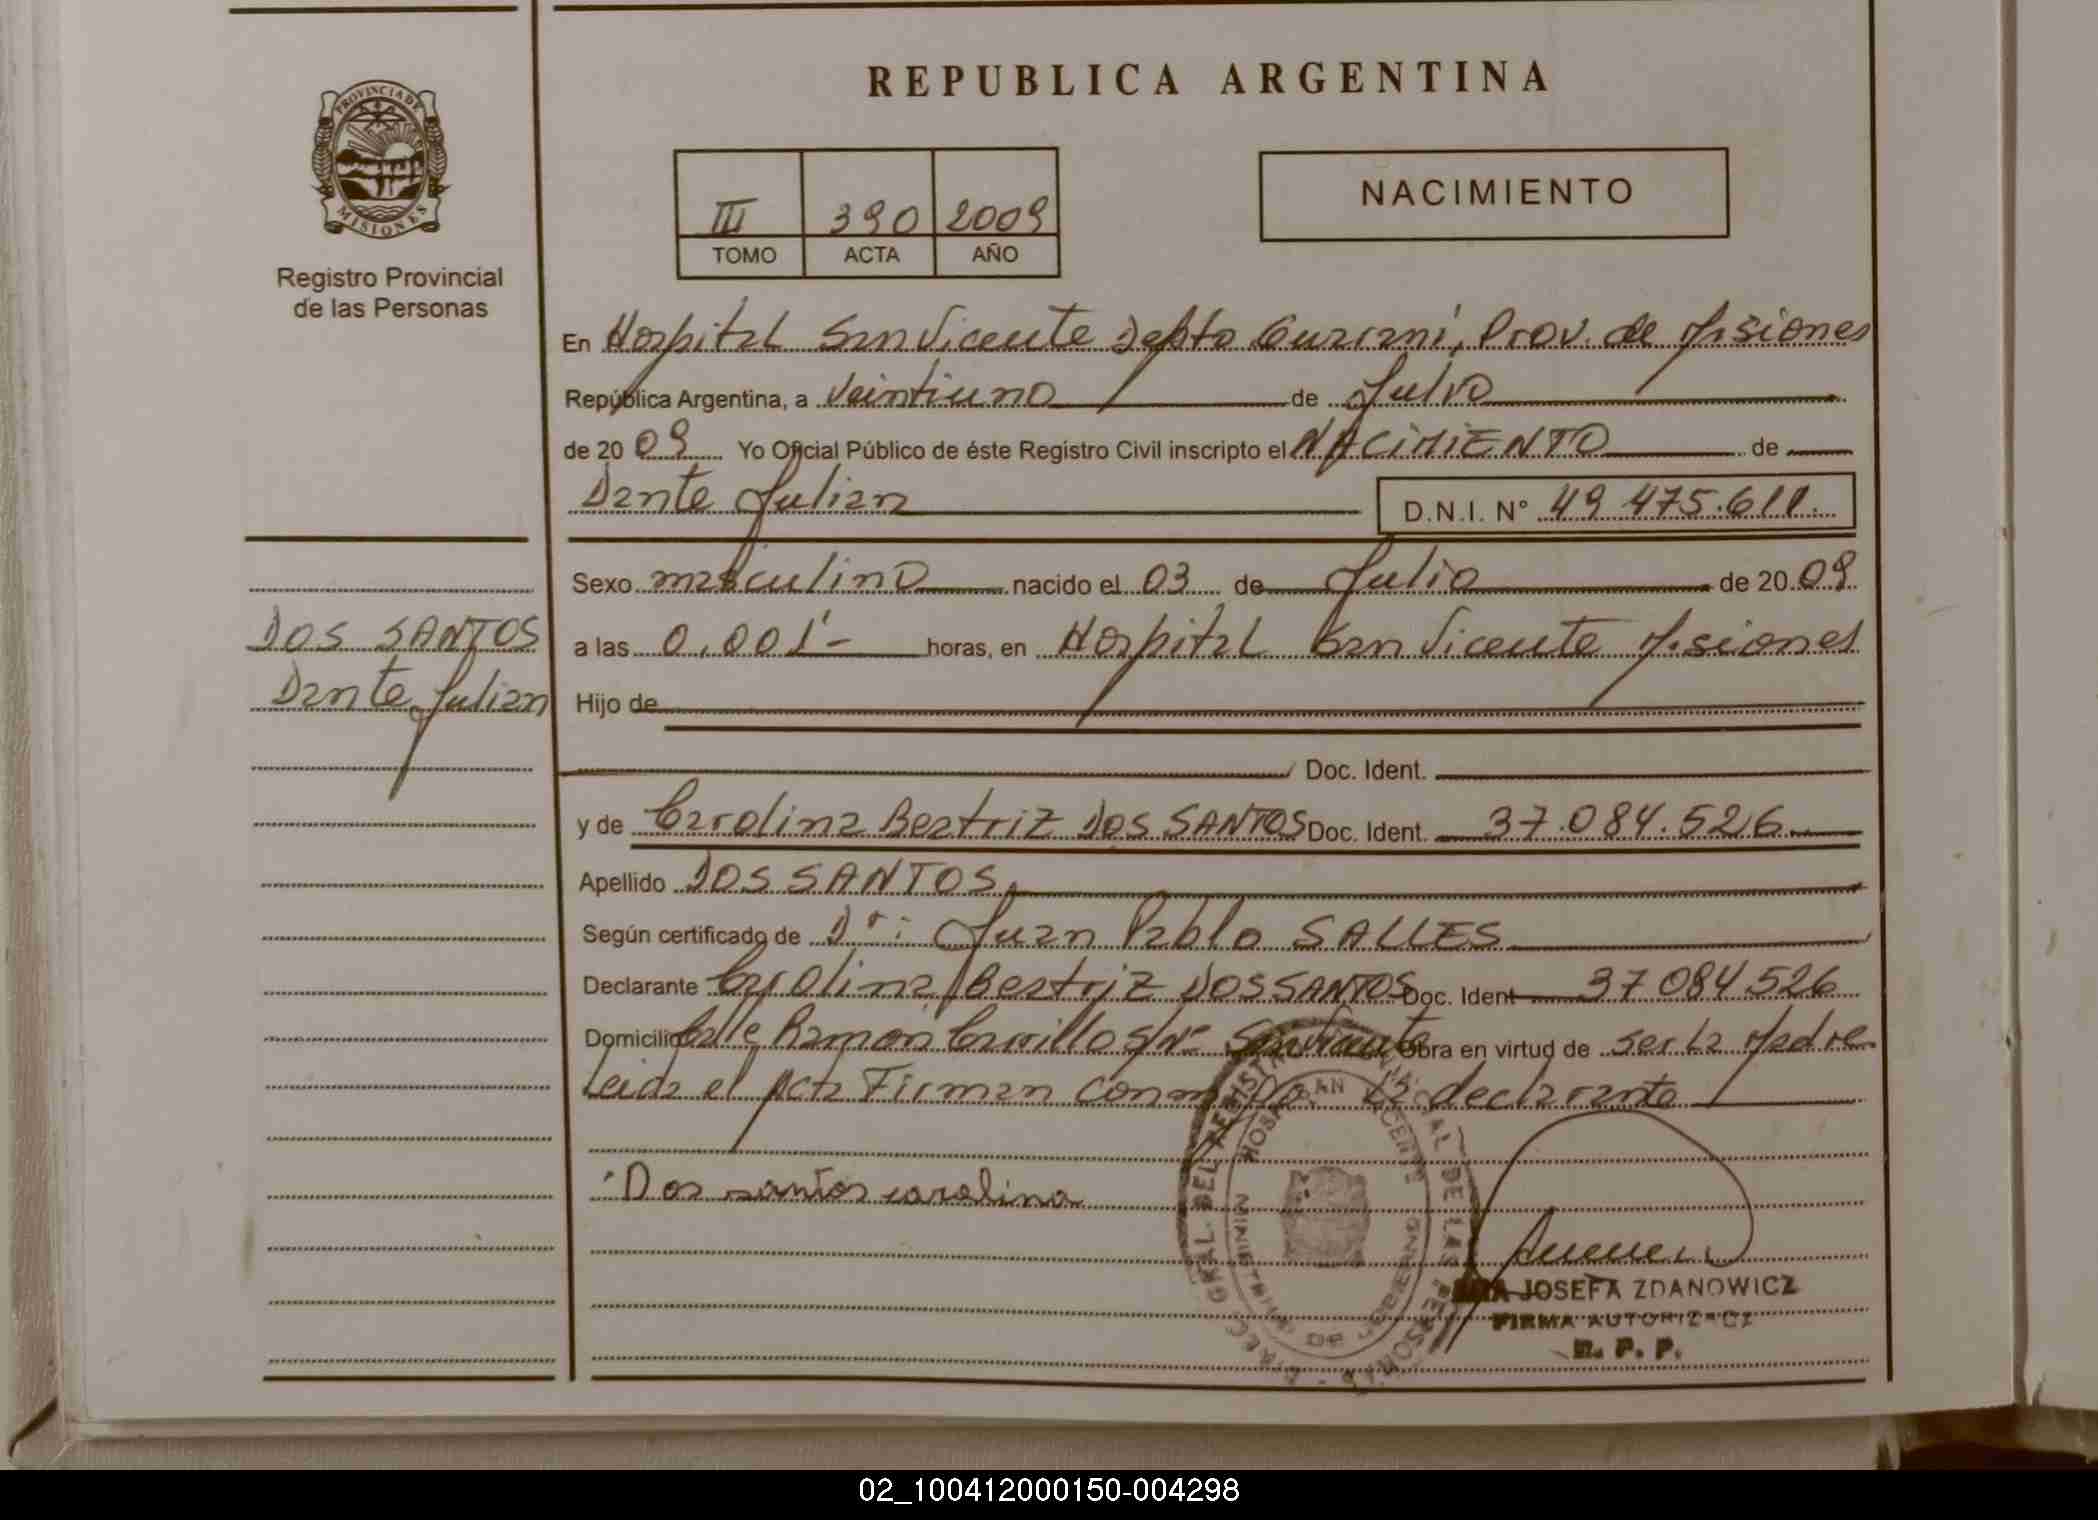 REPUBLICA ARGENTINA
PROVINCIA DE
MISIONES
Registro Provincial
de las Personas
III 390 2009
TOMO ACTA AÑO
NACIMIENTO
En Hospital San Vicente Depto Guarani, Prov. de Misiones
República Argentina, a Veintiuno de Julio
de 2009 Yo Oficial Público de éste Registro Civil inscripto el NACIMIENTO de
Dante Julian D.N.I. N° 49 475.611.
Sexo masculino nacido el 03 de Julio de 2009
DOS SANTOS
Dante Julian
a las 0,001'- horas, en Hospital San Vicente Misiones
Hijo de
Doc. Ident.
y de Carolina Beatriz DOS SANTOS Doc. Ident. 37.084.526
Apellido DOS SANTOS,
Según certificado de Dr: Juan Pablo SALLES
Declarante Carolina Beatriz DOS SANTOS Doc. Ident 37 084 526
Domicilio Calle Ramon Carrillo s/N° San Vicente Obra en virtud de ser la Madre
Leida el Acta Firman conmigo la declarante
Dos santos carolina
JOSEFA ZDANOWICZ
FIRMA AUTORIZACZ
R. P. P.
02_100412000150-004298